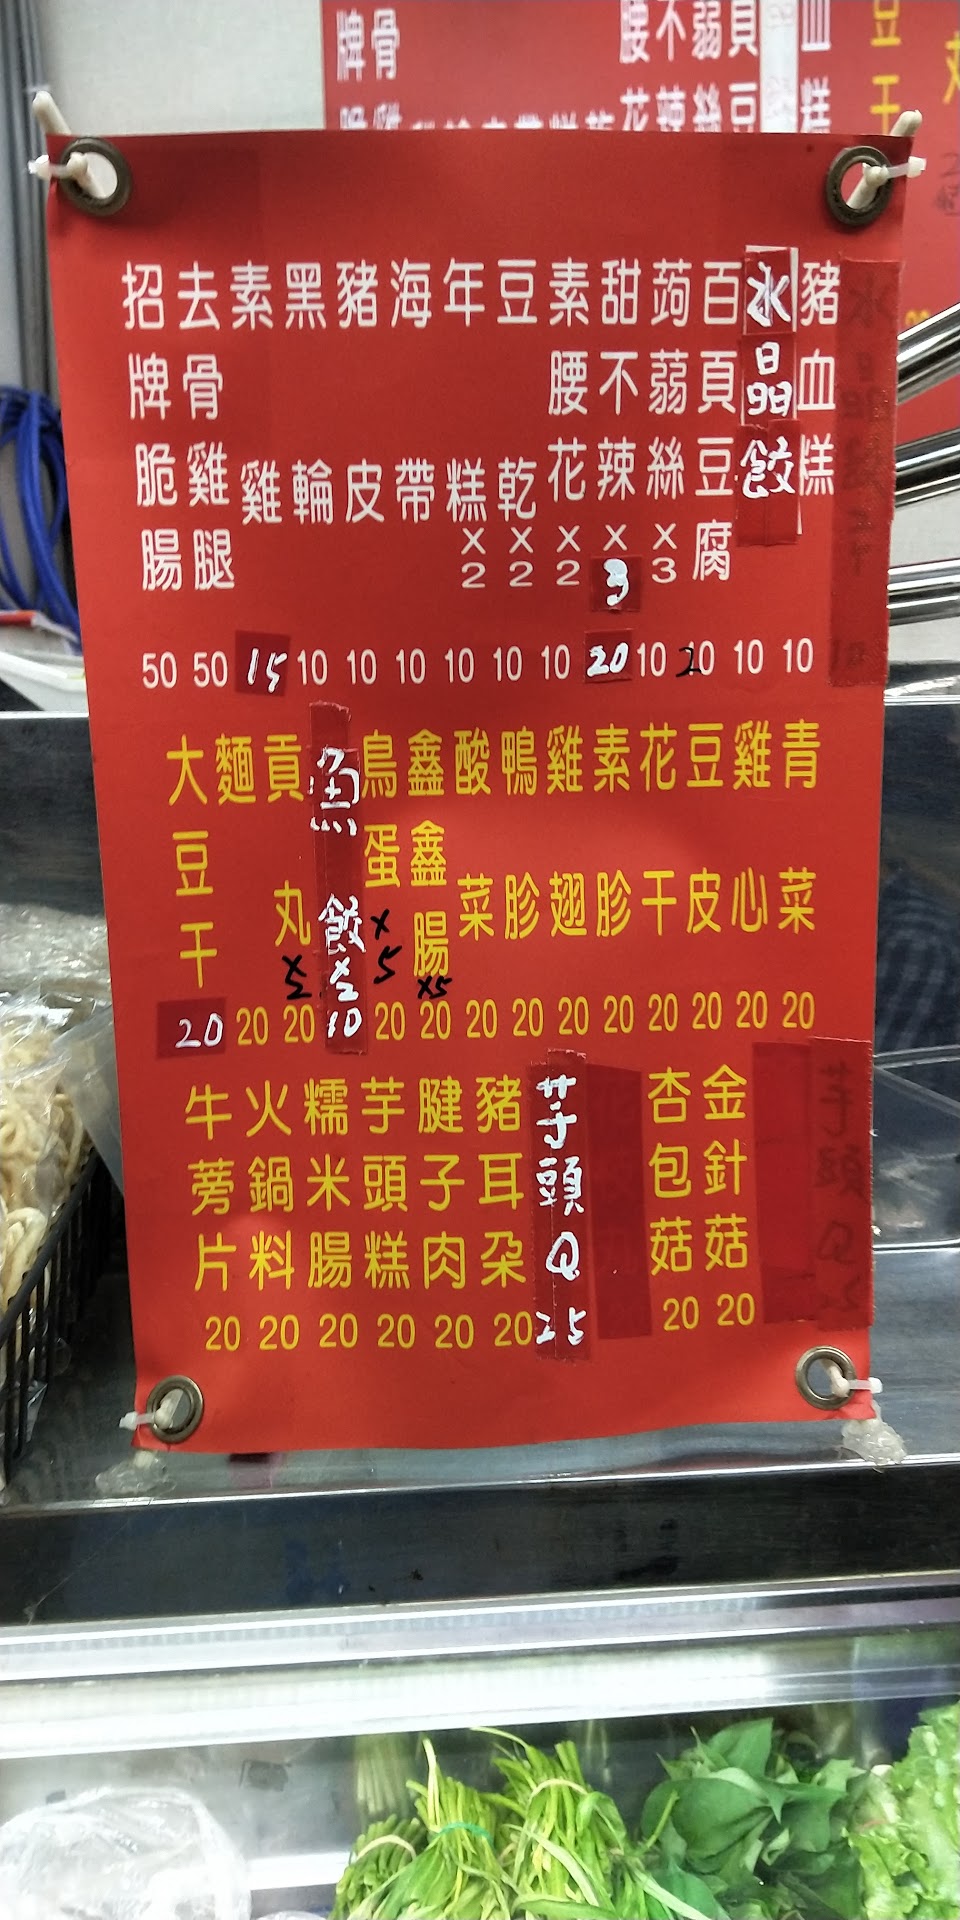 豬血糕 10
水晶餃 10
百頁豆腐 20
蒟蒻絲 X3 10
甜不辣 X3 20
素腰花 X2 10
豆乾 X2 10
年糕 X2 10
海帶 10
豬皮 10
黑輪 10
素雞 15
去骨雞腿 50
招牌脆腸 50
青菜 20
雞心 20
豆皮 20
花干 20
素胗 20
雞翅 20
鴨胗 20
酸菜 20
鑫鑫腸 x5 20
鳥蛋 x5 20
魚餃 x2 10
貢丸 x2 20
麵 20
大豆干 20
金針菇 20
杏包菇 20
芋頭Q 25
豬耳朵 20
腱子肉 20
芋頭糕 20
糯米腸 20
火鍋料 20
牛蒡片 20